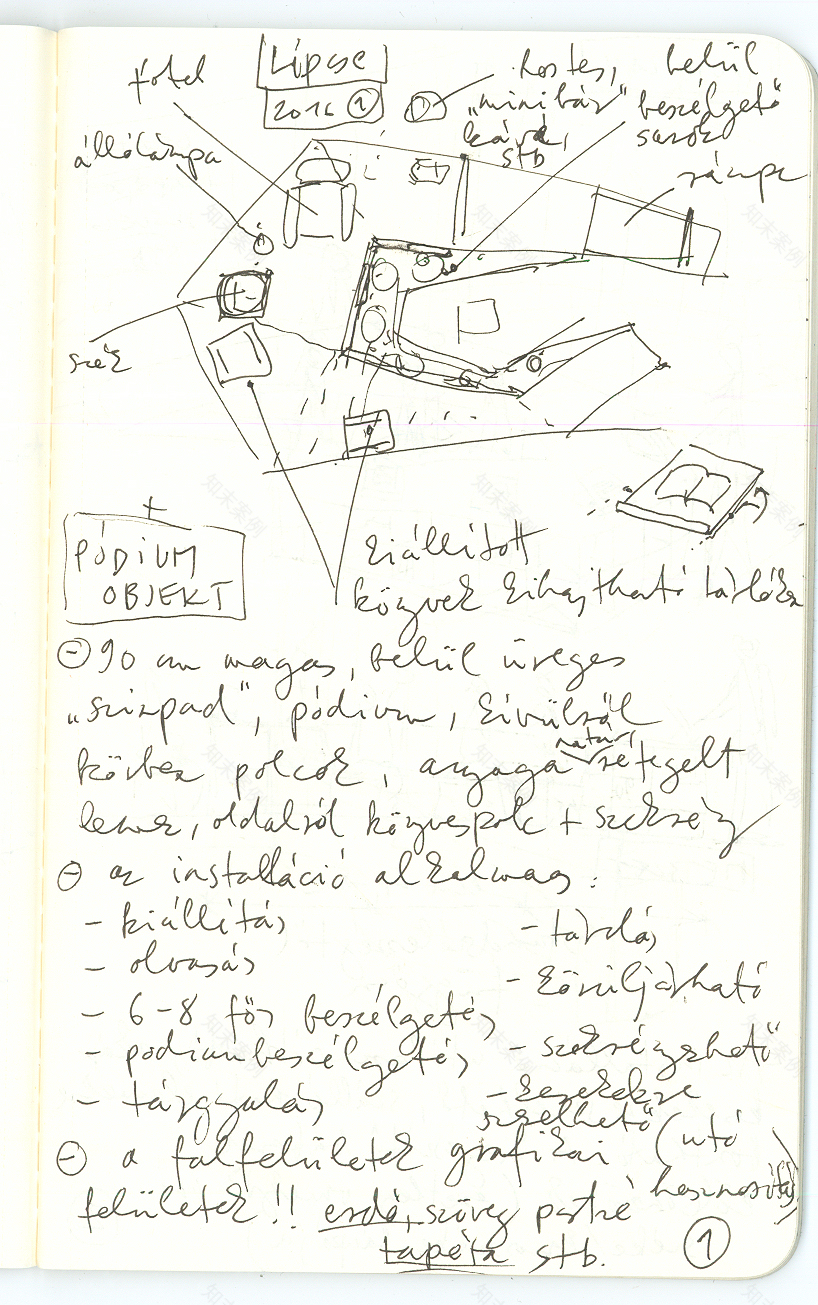 Lipcse
2016 ①
fotel
állólámpa
hostes,
"minibár"
kávé,
stb
belül
beszélgető
sarok
rámpa
szék
PÓDIUM
OBJEKT
kiállított
könyvek kihajtható tárlók
90 cm magas, belül üreges
"színpad", pódium, kívülről
körben polcok, anyaga natúr rétegelt
lemez, oldalról könyvespolc + szekrény
az installáció alkalmas:
- kiállítás
- olvasás
- 6-8 fős beszélgetés
- pódiumbeszélgetés
- tárgyalás
- tárolás
- körüljárható
- szekrényezhető
- kerekekre
szerelhető
a falfelületek grafikai (utó
hasznosítás)
felületek!! erdő, szöveg
tapéta stb.
①
知末案例